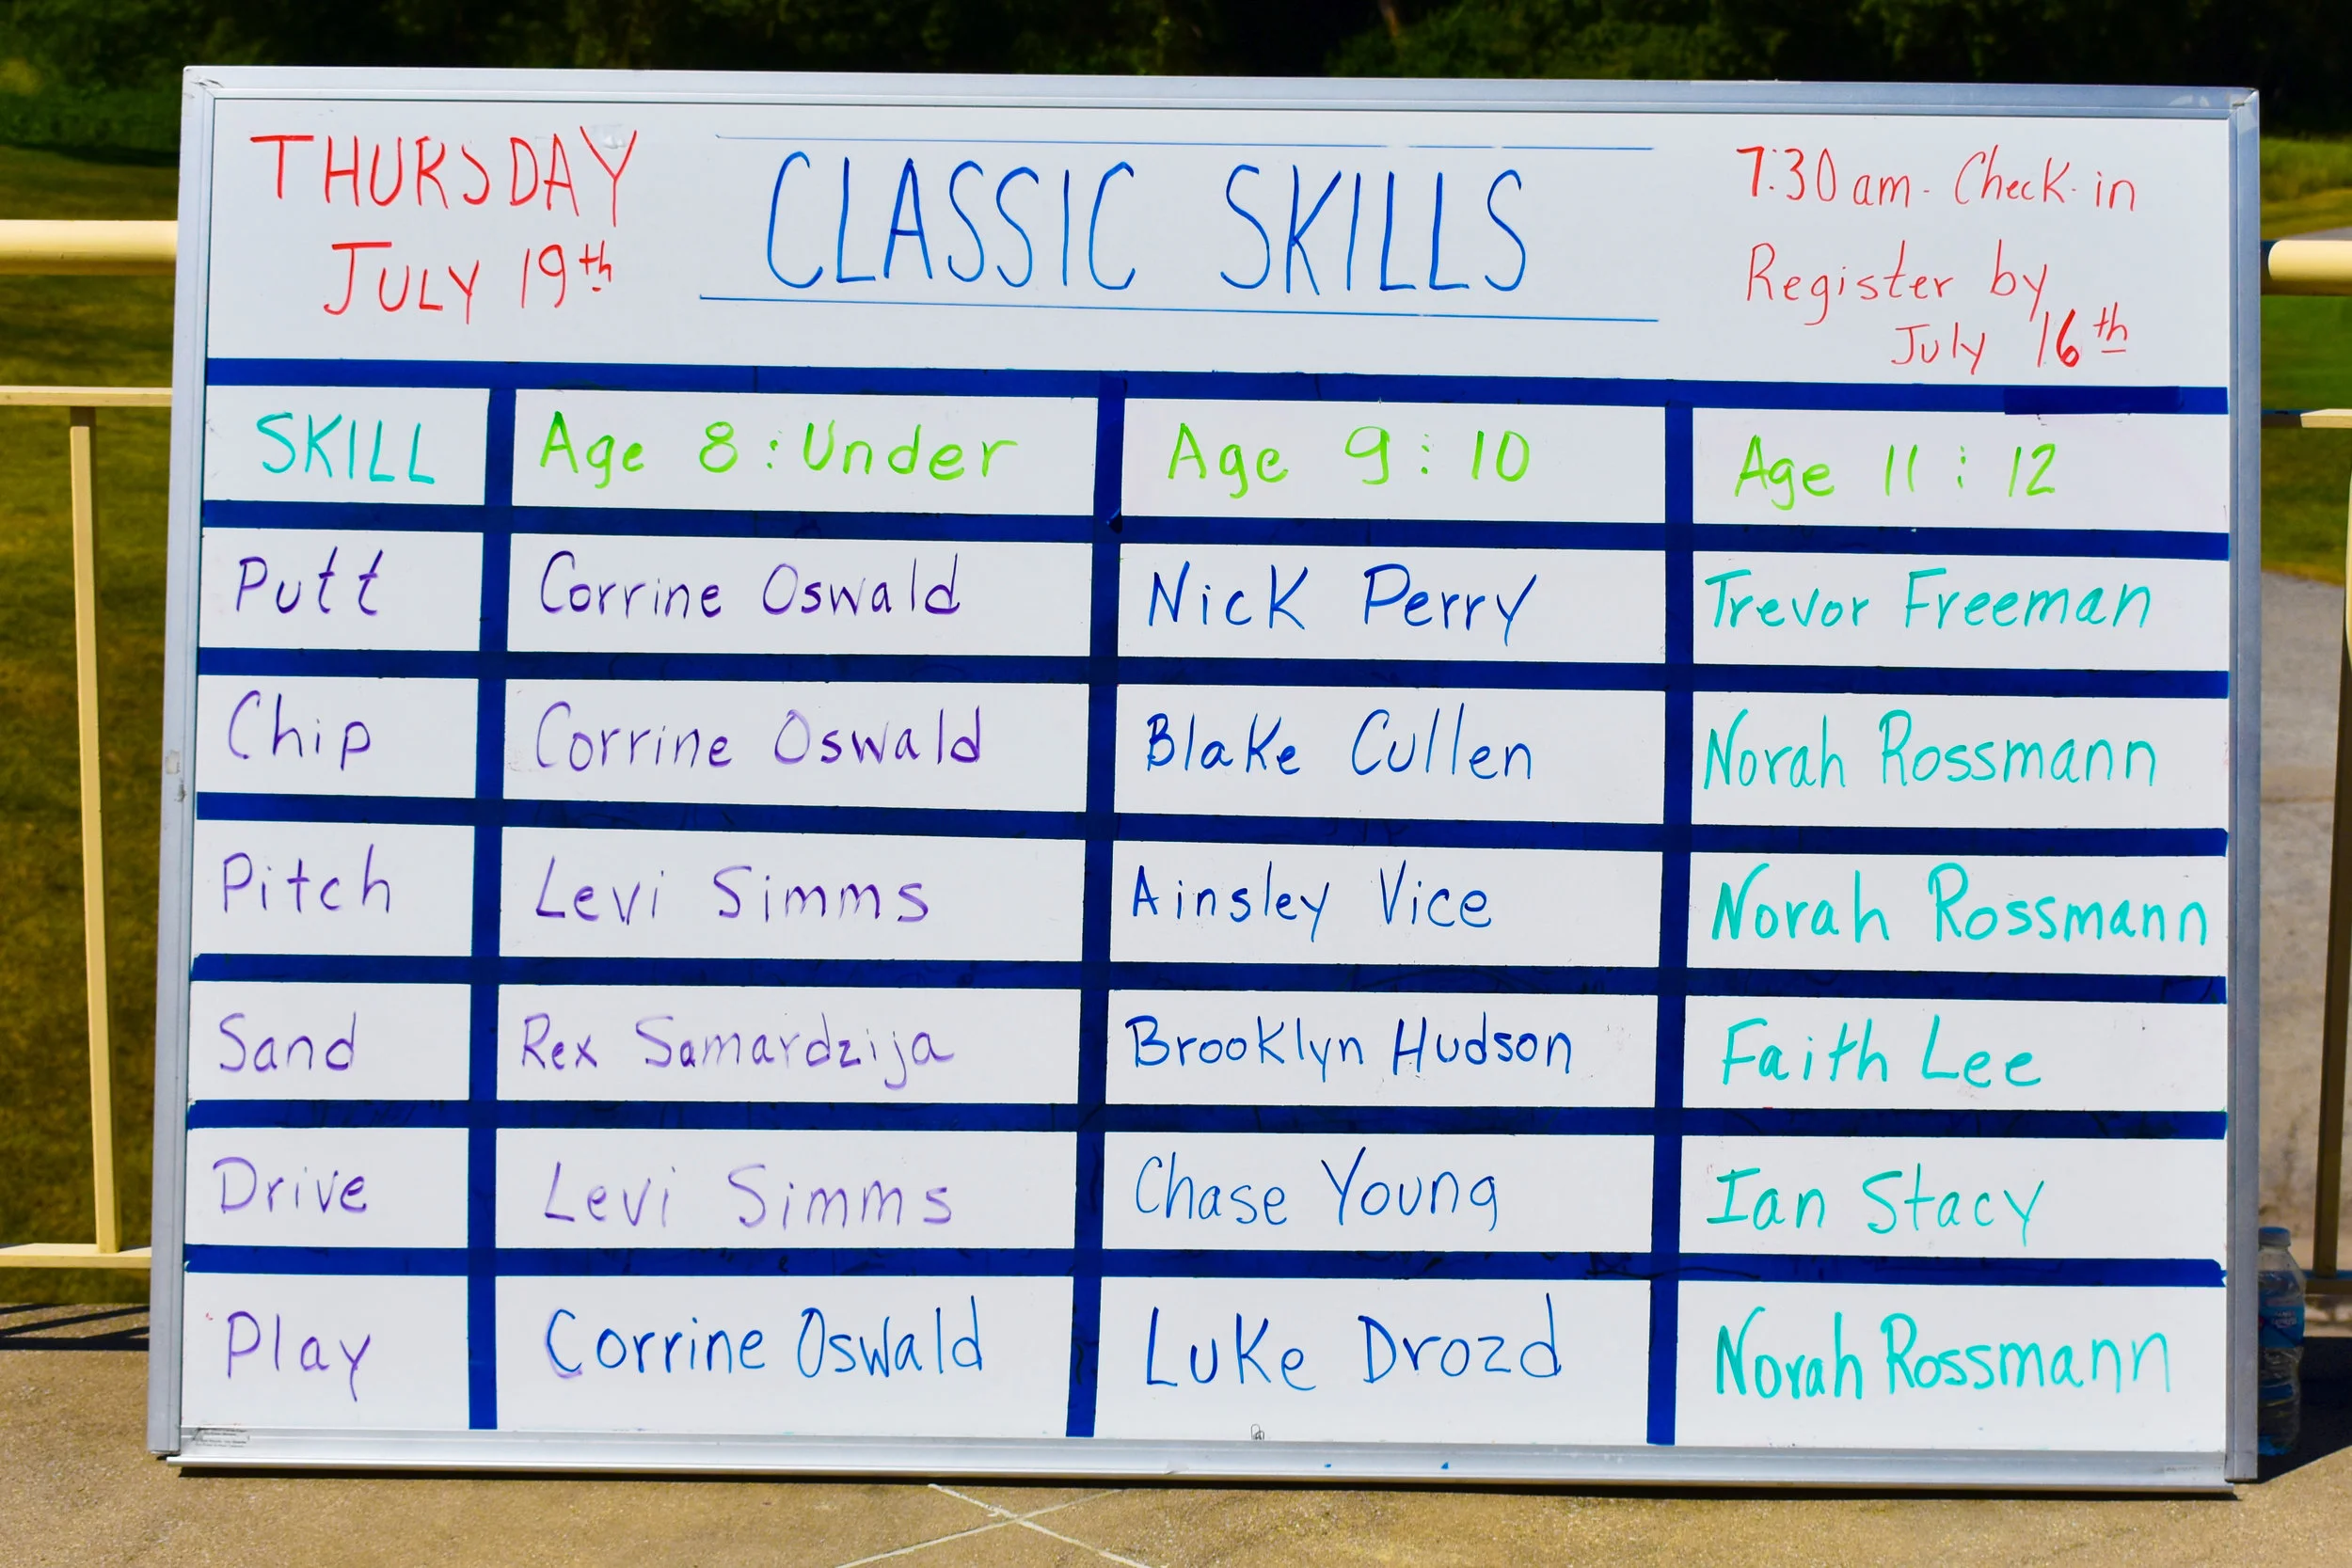 THURSDAY
JULY 19th
CLASSIC SKILLS
7:30 am - Check-in
Register by
July 16th
SKILL Age 8 : Under Age 9 : 10 Age 11 : 12
Putt Corrine Oswald Nick Perry Trevor Freeman
Chip Corrine Oswald Blake Cullen Norah Rossmann
Pitch Levi Simms Ainsley Vice Norah Rossmann
Sand Rex Samardzija Brooklyn Hudson Faith Lee
Drive Levi Simms Chase Young Ian Stacy
Play Corrine Oswald Luke Drozd Norah Rossmann